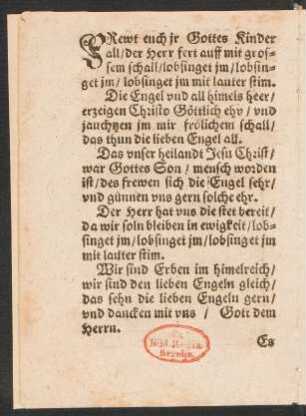 FRewt euch jr Gottes Kinder
all/der Herr fert auff mit gros-
sem schall/lobsinget jm/lobsin-
get jm/ lobsinget jm mit lauter stim.
Die Engel vnd all himels heer/
erzeigen Christo Göttlich ehr/ vnd
jauchtzen jm mit frölichem schall/
das thun die lieben Engel all.
Das vnser heilandt Jesu Christ/
war Gottes Son/ mensch worden
ist/des frewen sich die Engel sehr/
vnd günnen vns gern solche ehr.
Der Herr hat vns die stet bereit/
da wir soln bleiben in ewigkeit/lob-
singet jm/lobsinget jm/lobsinget jm
mit lauter stim.
Wir sind Erben im himelreich/
wir sind den lieben Engeln gleich/
das sehn die lieben Engeln gern/
vnd dancken mit vns / Gott dem
Herrn.
Es